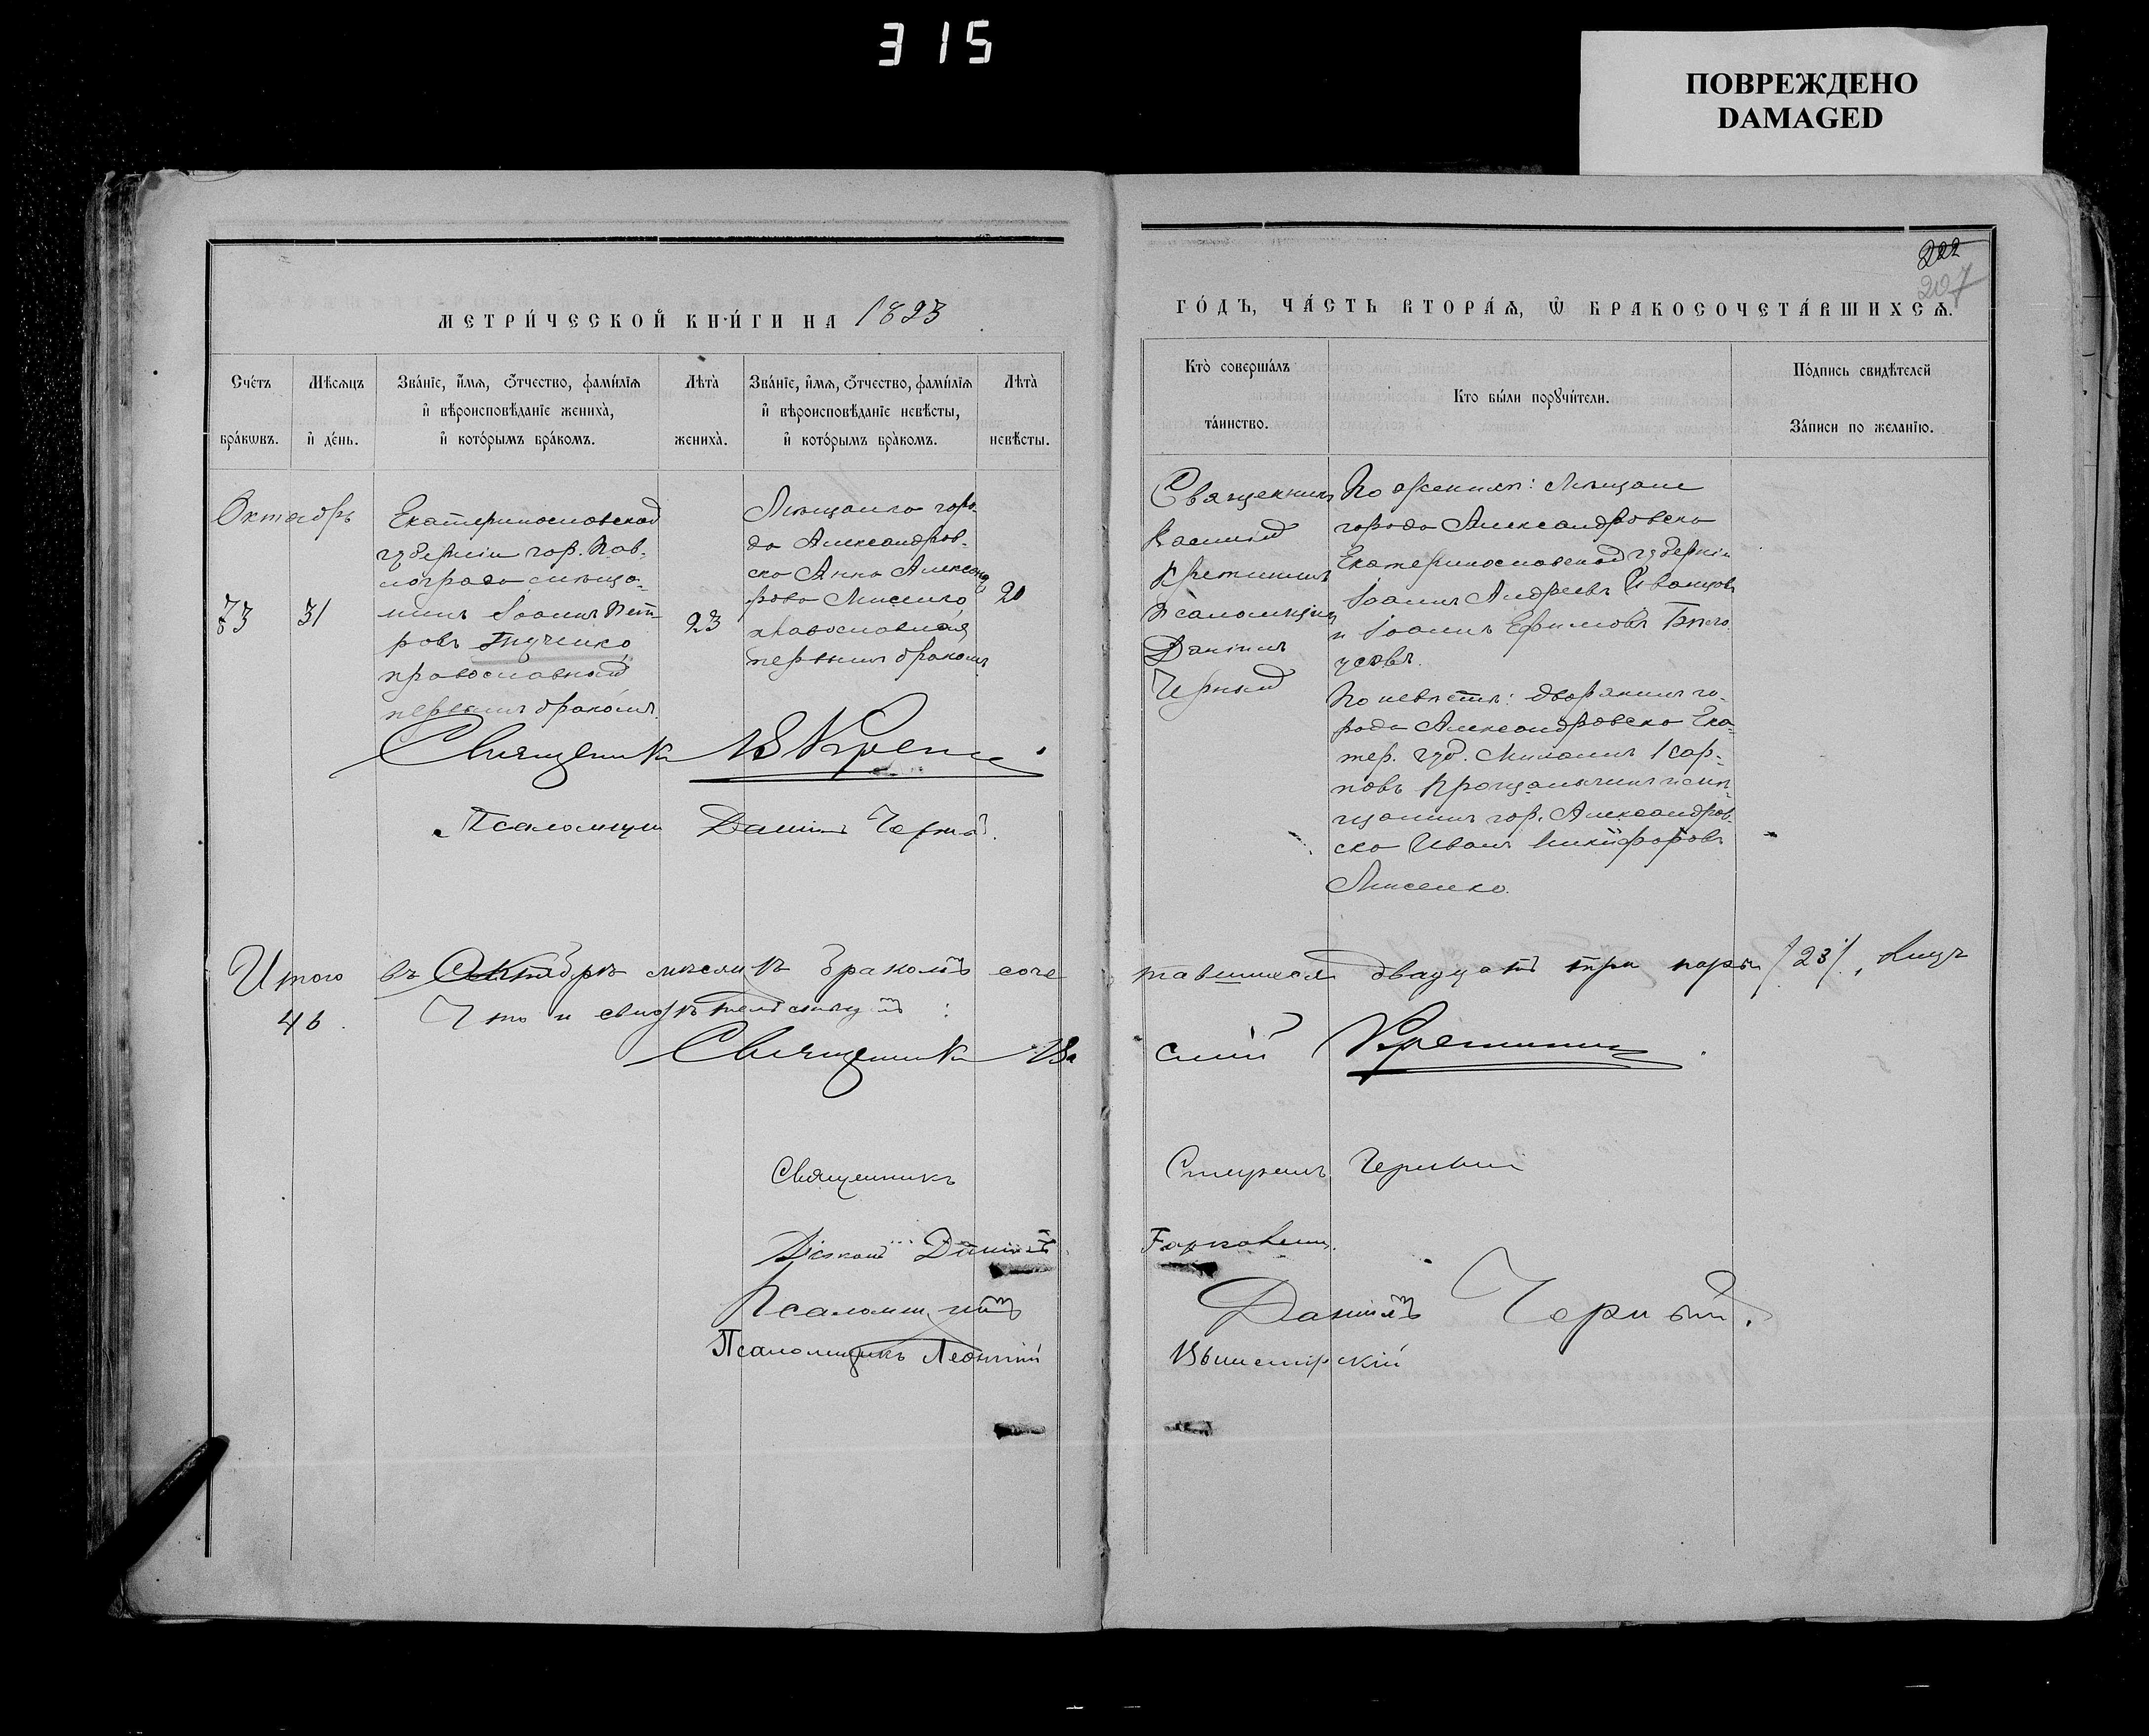 315
ПОВРЕЖДЕНО
DAMAGED
222
207
МЕТРИ́ЧЕСКОЙ КНИ́ГИ НА 1893
ГО́ДЪ, ЧА́СТЬ ВТОРА́Ѧ, Ѡ҆ БРАКОСОЧЕТА́ВШИХСѦ.
Сче́тъ бра́кѡвъ.
Мѣ́сѧцъ и҆ де́нь.
Зва́нїе, и҆́мѧ, ѻ҆́тчество, фами́лїѧ
и҆ вѣроисповѣ́данїе жениха̀,
и҆ кото́рымъ бра́комъ.
Лѣ́та̀ жениха̀.
Зва́нїе, и҆́мѧ, ѻ҆́тчество, фами́лїѧ
и҆ вѣроисповѣ́данїе невѣ́сты,
и҆ кото́рымъ бра́комъ.
Лѣ́та̀ невѣ́сты.
Кто̀ соверша́лъ
та́инство.
Кто бы́ли порꙋчи́тели.
По́дпись свидѣ́телей
За́писи по жела́нїю.
Октябрь
73
31
Екатеринославской
губерніи гор. Пав-
лограда мѣща-
нинъ Іоаннъ Пет-
ровъ
православный
первымъ бракомъ.
23
Мѣщанка горо-
да Александров-
ска Анна Александ
рова Лисенко
православная
первымъ бракомъ
20
Священникъ
Василій
Кретининъ
Псаломщикъ
Даніилъ
Черный
По женихѣ: мѣщане
города Александровска
Екатеринославской губерніи
Іоаннъ Андреевъ Иванцовъ
и Іоаннъ Ефимовъ
По невѣстѣ: дворянинъ го-
рода Александровска Ека-
тер. губ. Михаилъ Кар-
повъ и мѣ-
щанинъ гор. Александров-
ска Иванъ Никифоровъ
Лисенко.
Священникъ В Крети
Псаломщик Даніилъ Черный.
Итого въ Октябрѣ мѣсяцѣ бракомъ соче
тавшихся двадцать три пары /23/, лицъ
46. Что и свидѣтельствуютъ:
Священникъ Ва
силій Кретининъ
Священникъ
Стефанъ Черный
Діаконъ Даніилъ
Псаломщикъ
Даніилъ Черный.
Псаломщикъ Леонтій
Вышемірскій